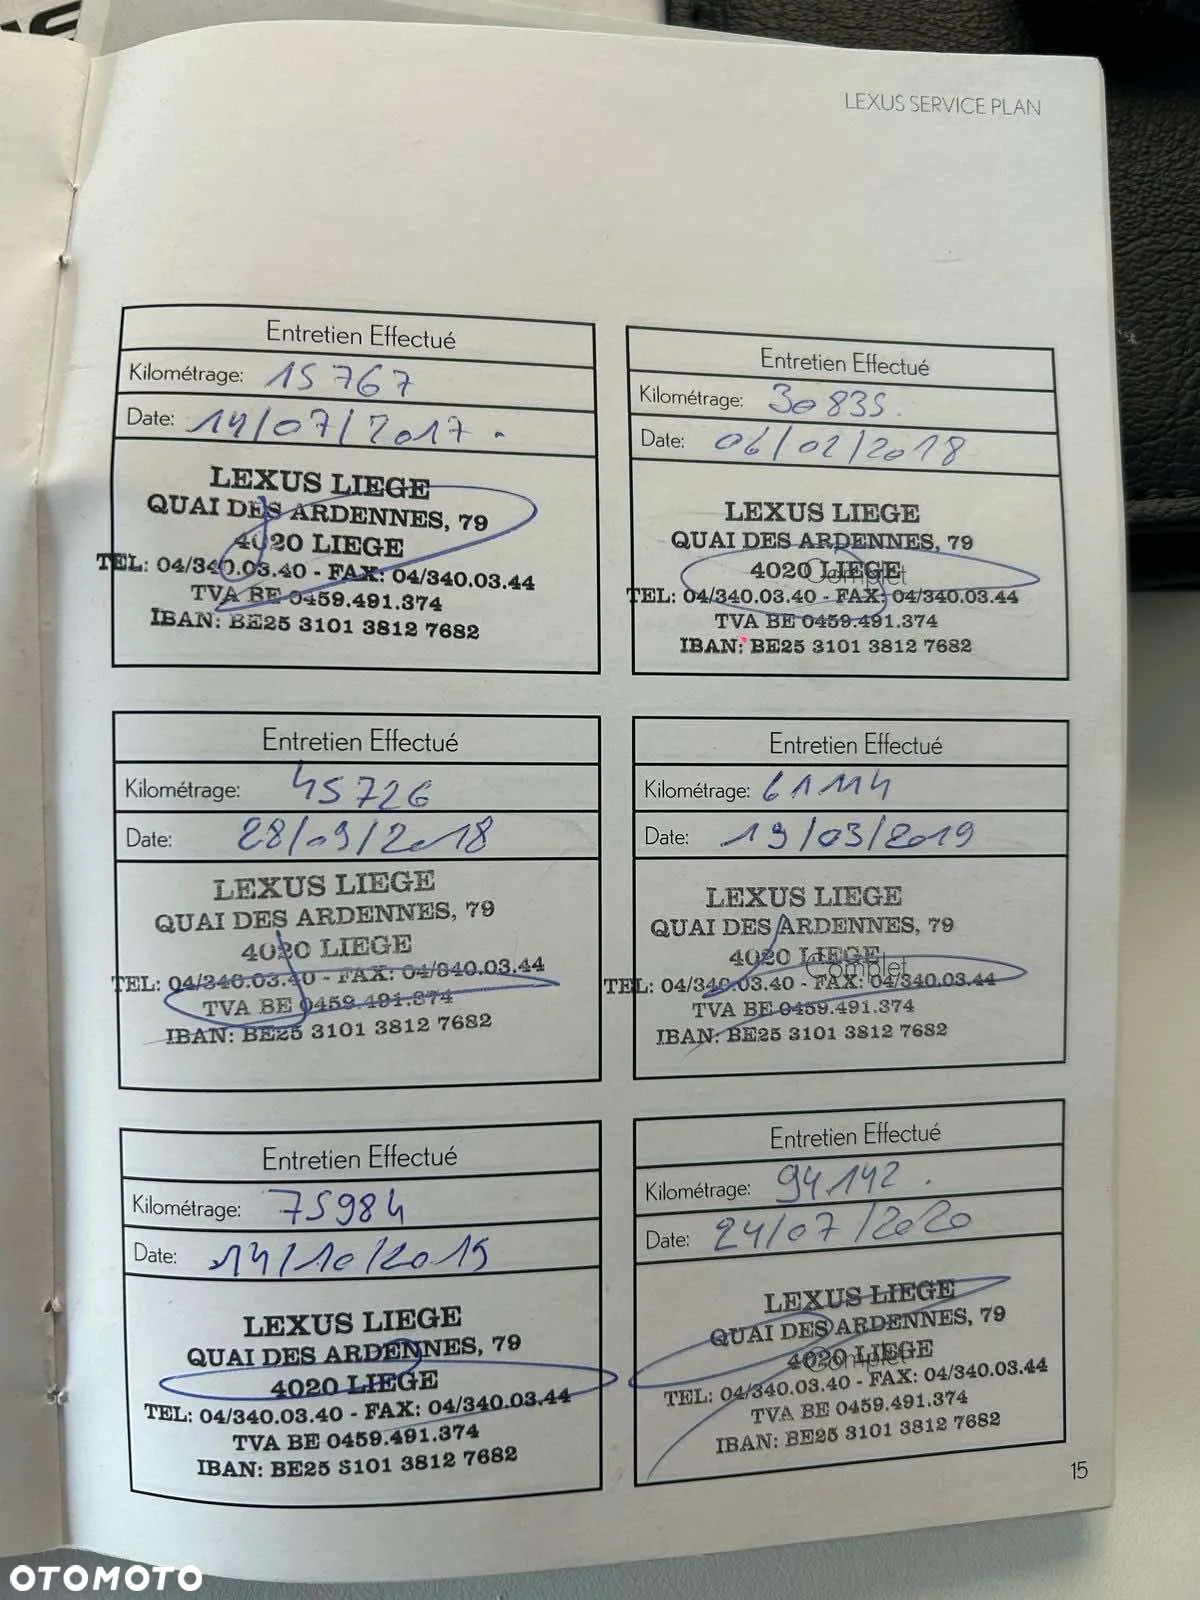 LEXUS SERVICE PLAN
Entretien Effectué
Kilométrage: 15 767
Date: 14/07/2017.
LEXUS LIEGE
QUAI DES ARDENNES, 79
4020 LIEGE
TEL: 04/340.03.40 - FAX: 04/340.03.44
TVA BE 0459.491.374
IBAN: BE25 3101 3812 7682
Entretien Effectué
Kilométrage: 30835.
Date: 06/02/2018
LEXUS LIEGE
QUAI DES ARDENNES, 79
4020 LIEGE
Complet
TEL: 04/340.03.40 - FAX: 04/340.03.44
TVA BE 0459.491.374
IBAN: BE25 3101 3812 7682
Entretien Effectué
Kilométrage: 45726
Date: 28/09/2018
LEXUS LIEGE
QUAI DES ARDENNES, 79
4020 LIEGE
TEL: 04/340.03.40 - FAX: 04/340.03.44
TVA BE 0459.491.374
IBAN: BE25 3101 3812 7682
Entretien Effectué
Kilométrage: 61114
Date: 19/03/2019
LEXUS LIEGE
QUAI DES ARDENNES, 79
4020 LIEGE
Complet
TEL: 04/340.03.40 - FAX: 04/340.03.44
TVA BE 0459.491.374
IBAN: BE25 3101 3812 7682
Entretien Effectué
Kilométrage: 75984
Date: 14/10/2019
LEXUS LIEGE
QUAI DES ARDENNES, 79
4020 LIEGE
TEL: 04/340.03.40 - FAX: 04/340.03.44
TVA BE 0459.491.374
IBAN: BE25 3101 3812 7682
Entretien Effectué
Kilométrage: 94.142.
Date: 24/07/2020
LEXUS LIEGE
QUAI DES ARDENNES, 79
4020 LIEGE
Complet
TEL: 04/340.03.40 - FAX: 04/340.03.44
TVA BE 0459.491.374
IBAN: BE25 3101 3812 7682
15
OTOMOTO